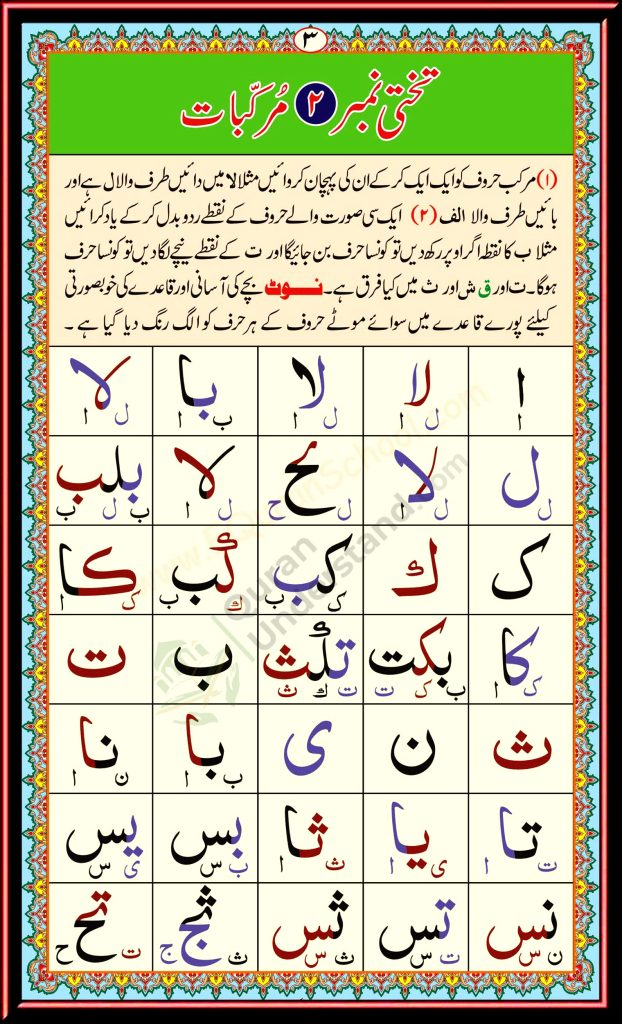 ٣
تختی نمبر ٢ مُرکّبات
(١) مرکب حروف کو ایک ایک کر کے ان کی پہچان کروائیں مثلا لا میں دائیں طرف والا ل ہے اور
بائیں طرف والا الف (٢) ایک سی صورت والے حروف کے نقطے ردو بدل کر کے یاد کرائیں
مثلا ب کا نقطہ اگر اوپر رکھ دیں تو کونسا حرف بن جائیگا اور ت کے نقطے نیچے لگا دیں تو کونسا حرف
ہوگا۔ ت اور ق ش اور ث میں کیا فرق ہے۔ نوٹ بچے کی آسانی اور قاعدے کی خوبصورتی
کیلئے پورے قاعدے میں سوائے موٹے حروف کے ہر حرف کو الگ رنگ دیا گیا ہے ۔
ا لا لا با لا
ل ا ل ا ب ا ل ا
ل لا لح لا بلب
ل ل ا ل ح ل ا ب ل ب
ک ك کب كب کا
ک ب ك ب ک ا
کا بکت تكث ب ت
ک ا ب ک ت ت ك ث
ث ن ی با نا
ب ا ن ا
تا یا ثا بس یس
ت ا ی ا ث ا ب س ی س
نس تس ثس ثج تح
ن س ت س ث س ث ج ت ح
Quran
Understand.com